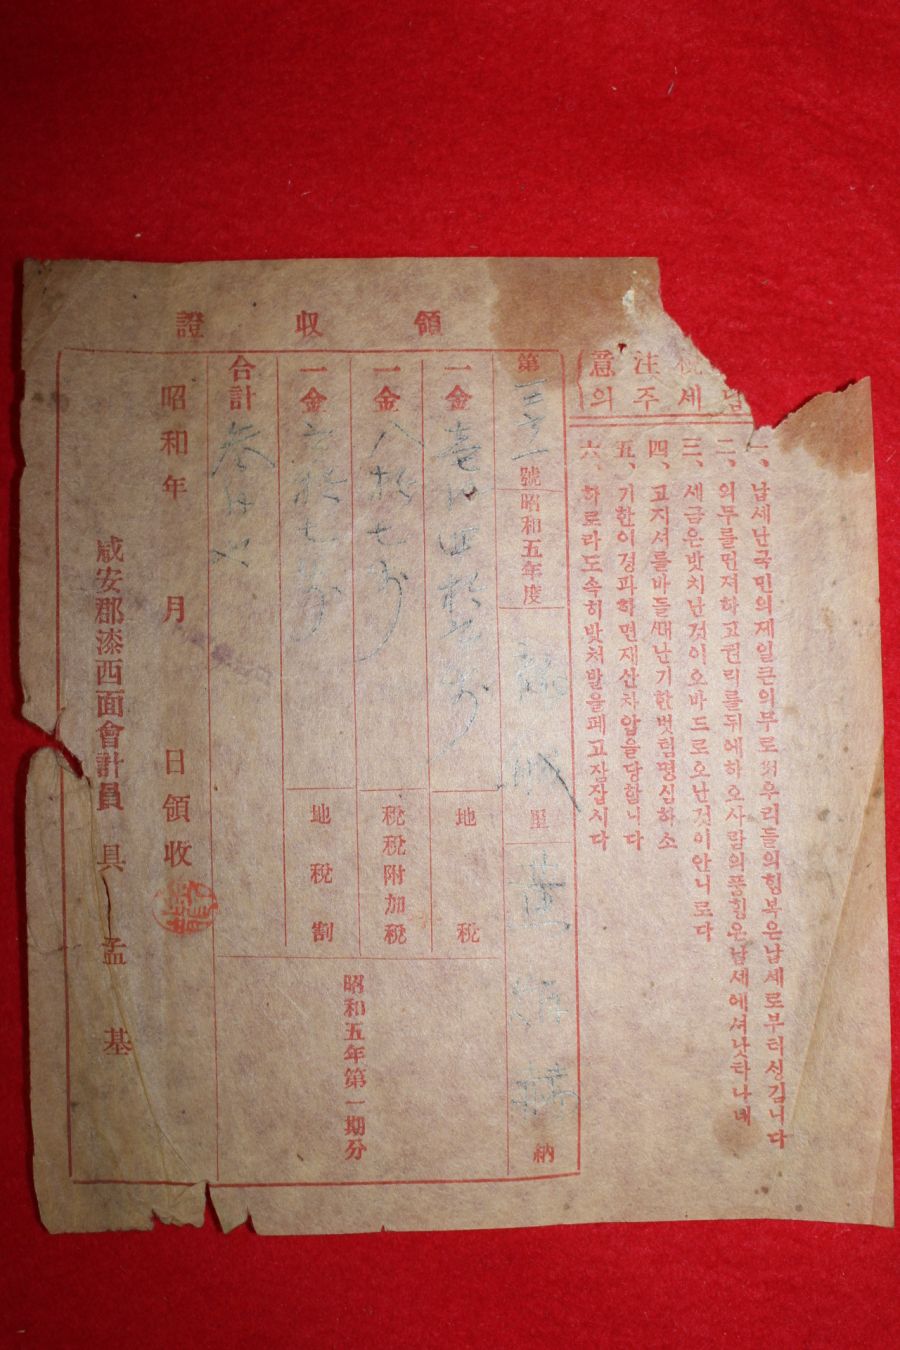 稅 注 意
납 세 주 의
一、납세난국민의제일큰의무로써우리들의힝복은납세로부터싱깁니다
二、의무를먼저하고권리를뒤에하오사람의풍힝은납세에셔낫타나내
三、세금은밧치난것이오바드로오난것이안니로다
四、고지셔를바들때난기한벗힘명심하소
五、기한이경과하면재산차압을당합니다
六、하로라도속히밧쳐발을페고잠잡시다
領 收 證
第 號 昭和五年度 里 納
一金壹円四拾 地 稅
一金八拾七 稅稅附加稅
一金六拾七 地 稅 割
合計參円 昭和五年第一期分
昭和 年 月 日領收
咸安郡漆西面會計員 具 孟 基